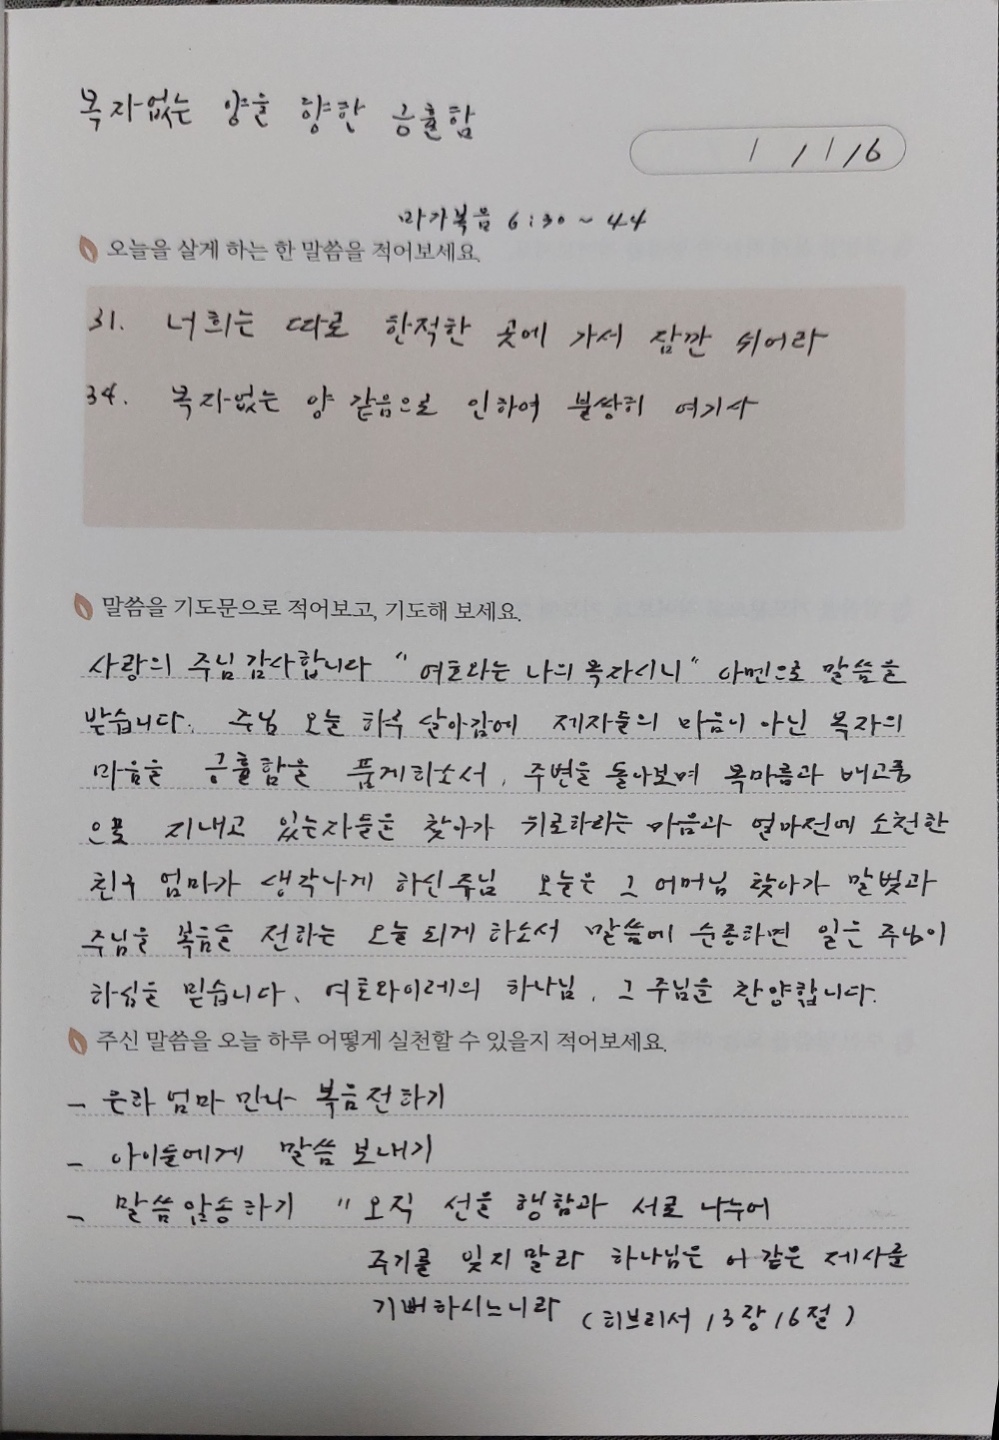 목자없는 양을 향한 긍휼함
1 / 1 / 6
마가복음 6:30~44
오늘을 살게 하는 한 말씀을 적어보세요.
31. 너희는 따로 한적한 곳에 가서 잠깐 쉬어라
34. 목자없는 양 같음으로 인하여 불쌍히 여기사
말씀을 기도문으로 적어보고, 기도해 보세요.
사랑의 주님 감사합니다 "여호와는 나의 목자시니" 아멘으로 말씀을
받습니다. 주님 오늘 하루 살아감에 제자들의 마음이 아닌 목자의
마음을 긍휼함을 품게하소서, 주변을 돌아보며 목마름과 배고품
으로 지내고 있는자들을 찾아가 위로하라는 마음과 얼마전에 소천한
친구 엄마가 생각나게 하신주님 오늘은 그 어머님 찾아가 말벗과
주님을 복음을 전하는 오늘 되게 하소서 말씀에 순종하면 일은 주님이
하심을 믿습니다. 여호와이레의 하나님, 그 주님을 찬양합니다.
주신 말씀을 오늘 하루 어떻게 실천할 수 있을지 적어보세요.
- 엄마 만나 복음전하기
- 아이들에게 말씀 보내기
- 말씀암송하기 "오직 선을 행함과 서로 나누어
주기를 잊지말라 하나님은 이 같은 제사를
기뻐하시느니라 (히브리서 13장 16절)